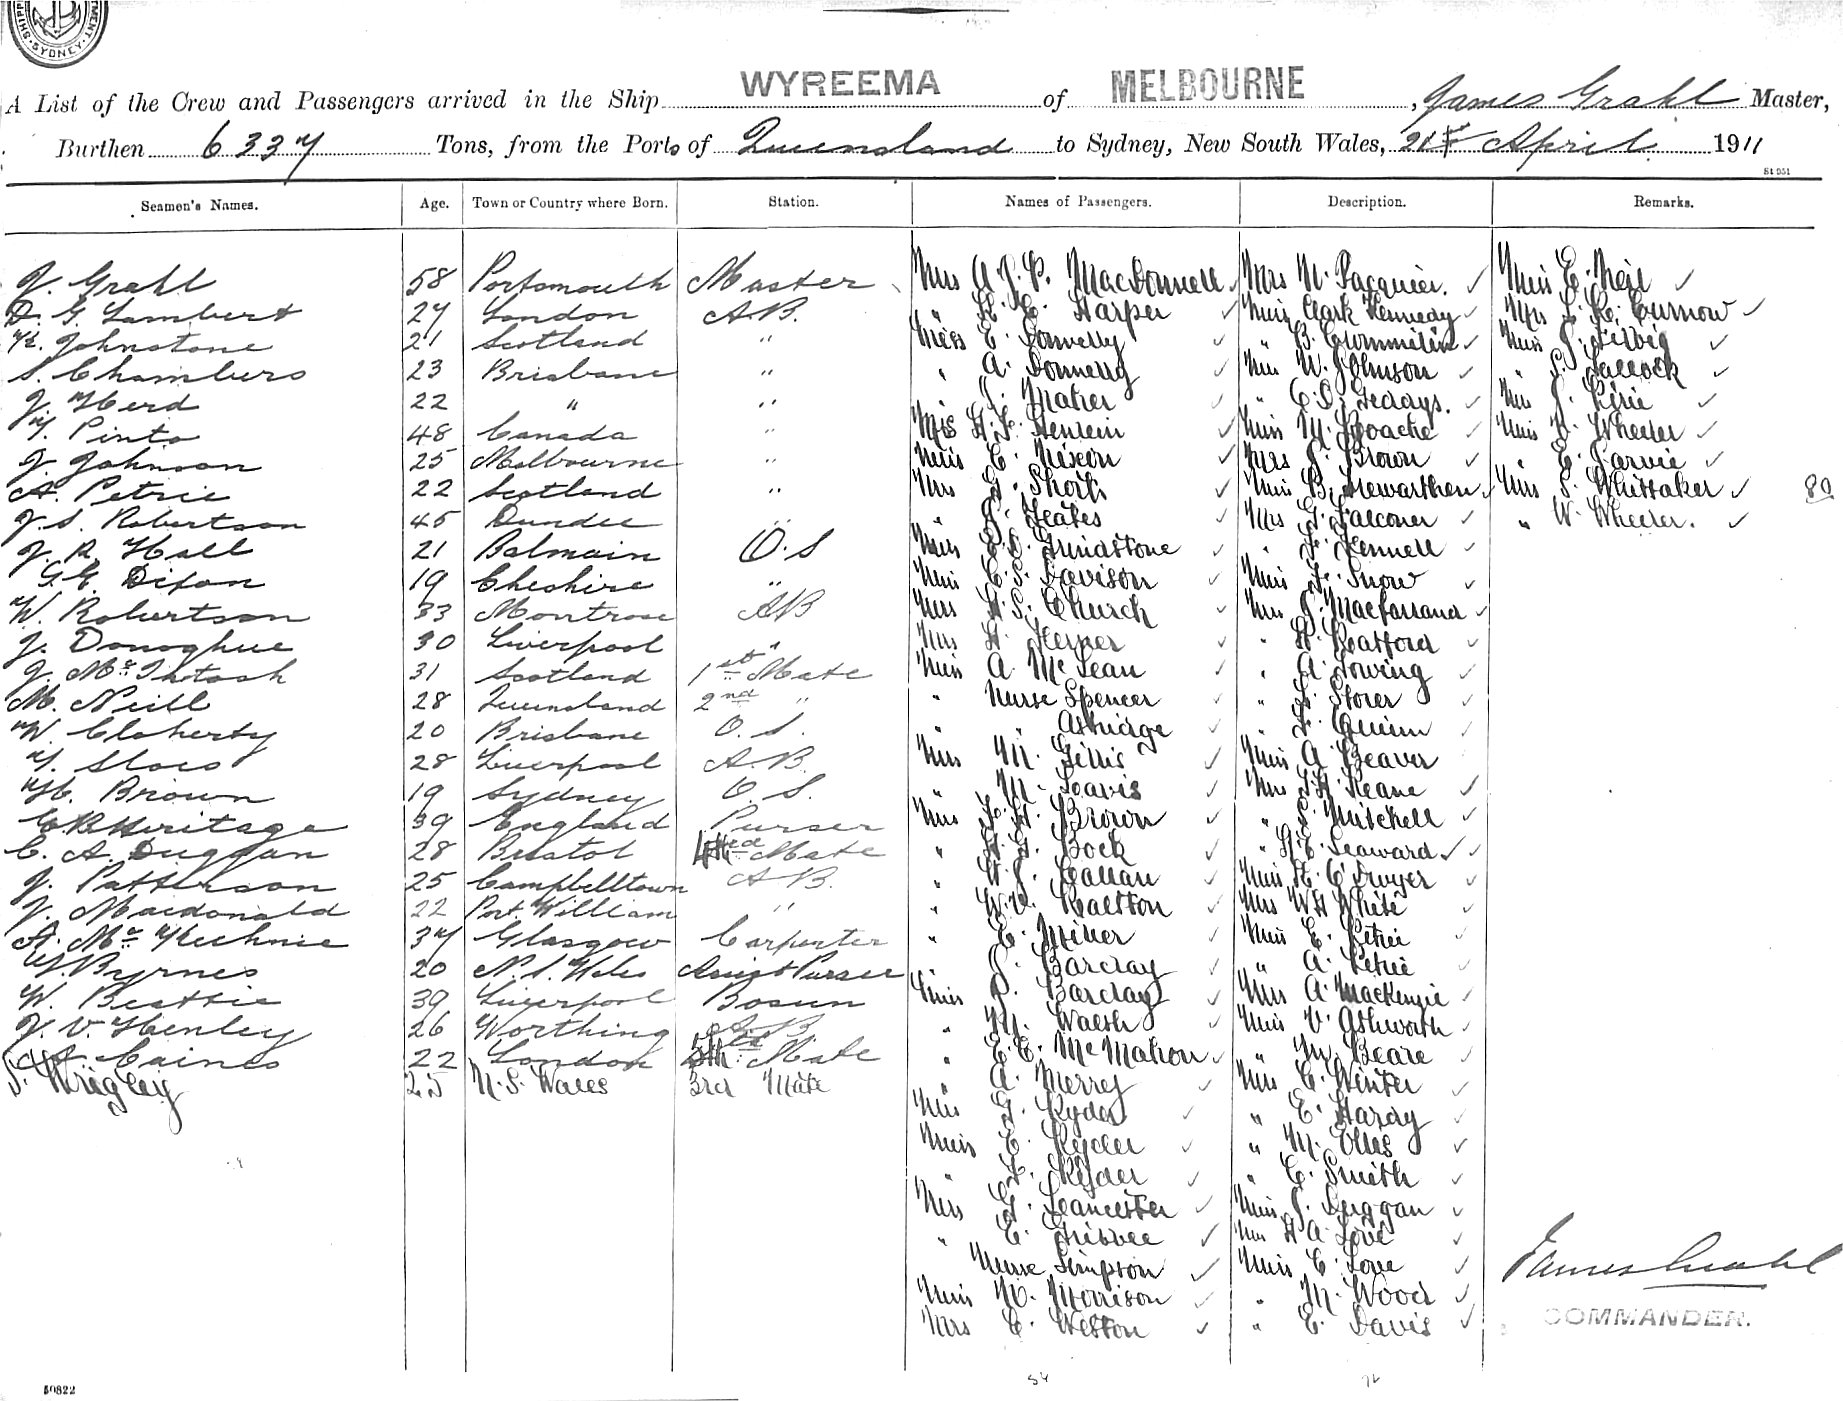 SYDNEY
A List of the Crew and Passengers arrived in the Ship WYREEMA of MELBOURNE, James Grahl Master,
Burthen 6337 Tons, from the Ports of Queensland to Sydney, New South Wales, 21st April 1911
S1 951
Seamen's Names. Age. Town or Country where Born. Station. Names of Passengers. Description. Remarks.
J. Grahl 58 Portsmouth Master Mrs A.J.P. MacDonnell Mrs N. Pacquier. Miss E. Neil
D. G. Lambert 27 London A.B. " Harper Miss Clark Kennedy Mrs Curnow
Johnstone 21 Scotland " Miss E. Donnelly " B. Cummin Miss
S. Chambers 23 Brisbane " " A. Donnelly Mrs W. Johnson " S.
J. Herd 22 " " " Maher " Geddys. Mrs J. Pirie
Pinto 48 Canada " Mrs Henlein Miss M. Roache Miss Wheeler
J. Johnson 25 Melbourne " Miss C. Nixon Mrs J. Brown " E. Jarvie
A. Petrie 22 Scotland " Mrs G. Short Miss B. Trewarthen Mrs S. Whittaker 80
J. S. Robertson 45 Dundee " " Yeates Mrs G. Falconer " W. Wheeler.
J. R. Hall 21 Balmain O.S Miss Grindstone " Fennell
G. E. Dixon 19 Cheshire " Miss Davison Miss Snow
W. Robertson 33 Montrose AB Mrs Church Mrs J. Macfarland
J. Donoghue 30 Liverpool " Mrs H. " H. Ratford
J. McIntosh 31 Scotland 1st Mate Miss A. McLean " A. Towing
M. Neill 28 Queensland 2nd " " Nurse Spencer " Storer
W. Cloherty 20 Brisbane O.S. " " Ashridge " Quinn
28 Liverpool A.B. Miss M. Gillis Miss A Beaver
H. Brown 19 Sydney O.S. " M. Davis Mrs Keane
Heritage 39 England Purser Mrs Brown " Mitchell
C. A. Duggan 28 Bristol Mate " Bock " Seaward
J. Patterson 25 Campbelltown A.B. " Callan Miss Dwyer
J. Macdonald 22 Port William " " Ralston Mrs WH White
A. McKechnie 37 Glasgow Carpenter " E. Miller Miss E. Petrie
Byrnes 20 N.S. Wales Assist Purser " Barclay " A. Petrie
W. Beattie 39 Liverpool Bosun Miss Barclay Mrs A. MacKenzie
J. V. Henley 26 Worthing AB " M. Walsh Miss V. Ashworth
Caines 22 London Mate " E. McMahon " M. Beare
Wrigley 25 N.S. Wales 3rd Mate " A. Merrey Mrs C. Winter
Mrs G. Ryder " E. Hardy
Miss C. Ryder " M. Olles
" Ryder " C. Smith
Mrs G. Lancester Miss J. Duggan
" E. Gribbee Mrs H A Love
Nurse Simpson Miss C. Love
Miss M. Morrison " M. Wood
Mrs C. Weston " E. Davis
James Grahl
COMMANDER.
50822